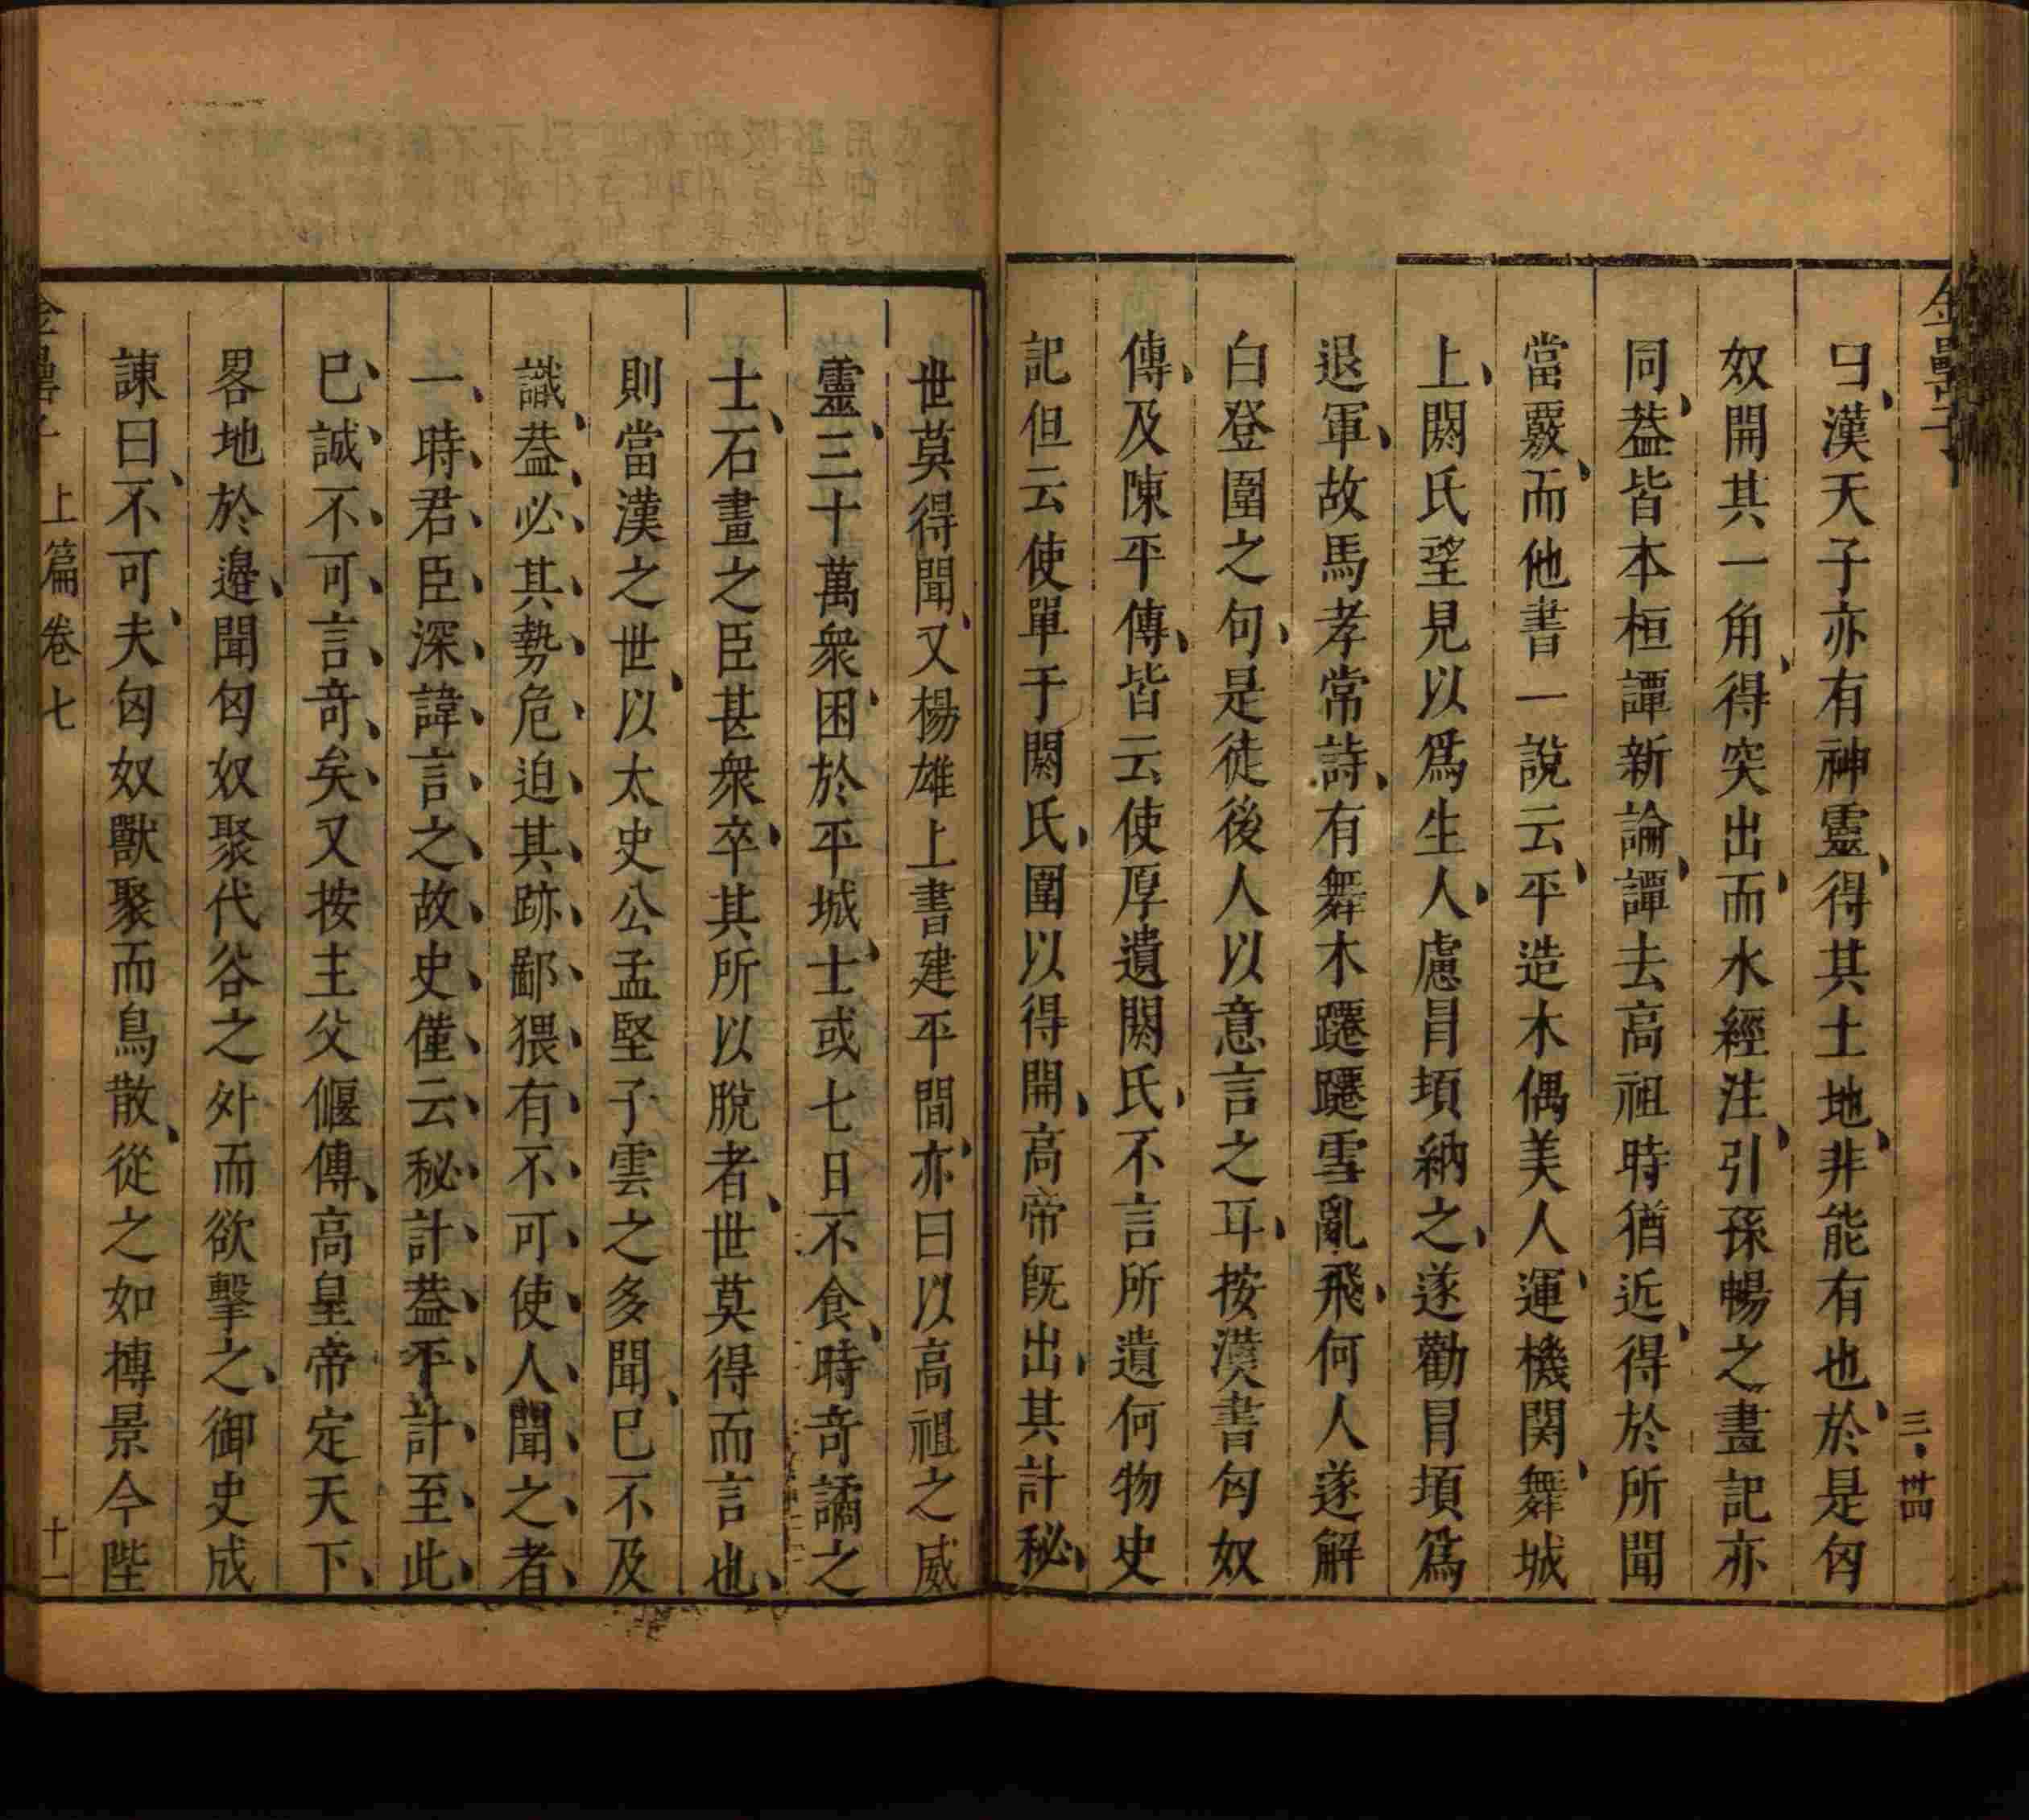 金罍子
三·廿四
曰漢天子亦有神靈得其土地非能有也於是匈
奴開其一角得突出而水經注引孫暢之畫記亦
同葢皆本桓譚新論譚去高祖時猶近得於所聞
當覈而他書一說云平造木偶美人運機関舞城
上閼氏望見以爲生人慮冒頓納之遂勸冒頓爲
退軍故馬孝常詩有舞木躚躚雪亂飛何人遂解
白登圍之句是徒後人以意言之耳按漢書匈奴
傳及陳平傳皆云使厚遺閼氏不言所遺何物史
記但云使單于閼氏圍以得開高帝旣出其計秘
世莫得聞又楊雄上書建平間亦曰以高祖之威
靈三十萬衆困於平城士或七日不食時竒譎之
士石畫之臣甚衆卒其所以脫者世莫得而言也
則當漢之世以太史公孟堅子雲之多聞巳不及
識葢必其勢危迫其跡鄙猥有不可使人聞之者
一時君臣深諱言之故史僅云秘計葢平計至此
巳誠不可言竒矣又按主父偃傳高皇帝定天下
畧地於邉聞匈奴聚代谷之外而欲擊之御史成
諫曰不可夫匈奴獸聚而鳥散從之如摶景今陛
金罍子
上篇卷七
十一